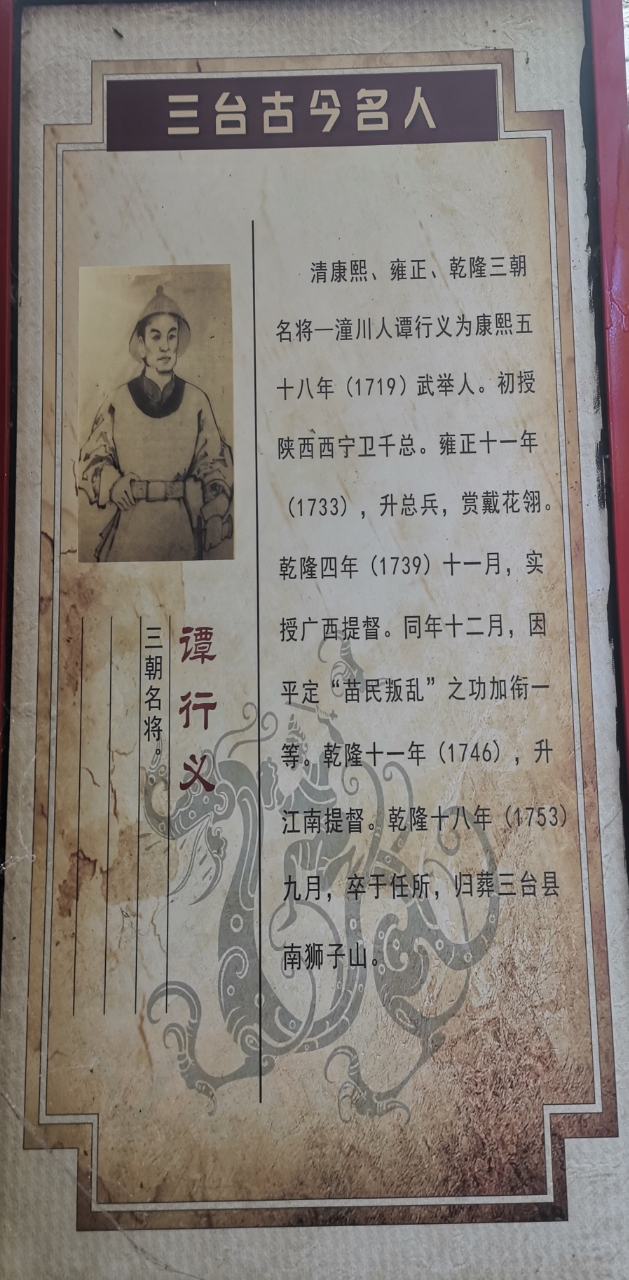 三台古今名人
谭行义
三朝名将。
清康熙、雍正、乾隆三朝
名将—潼川人谭行义为康熙五
十八年（1719）武举人。初授
陕西西宁卫千总。雍正十一年
（1733），升总兵，赏戴花翎。
乾隆四年（1739）十一月，实
授广西提督。同年十二月，因
平定“苗民叛乱”之功加衔一
等。乾隆十一年（1746），升
江南提督。乾隆十八年（1753）
九月，卒于任所，归葬三台县
南狮子山。